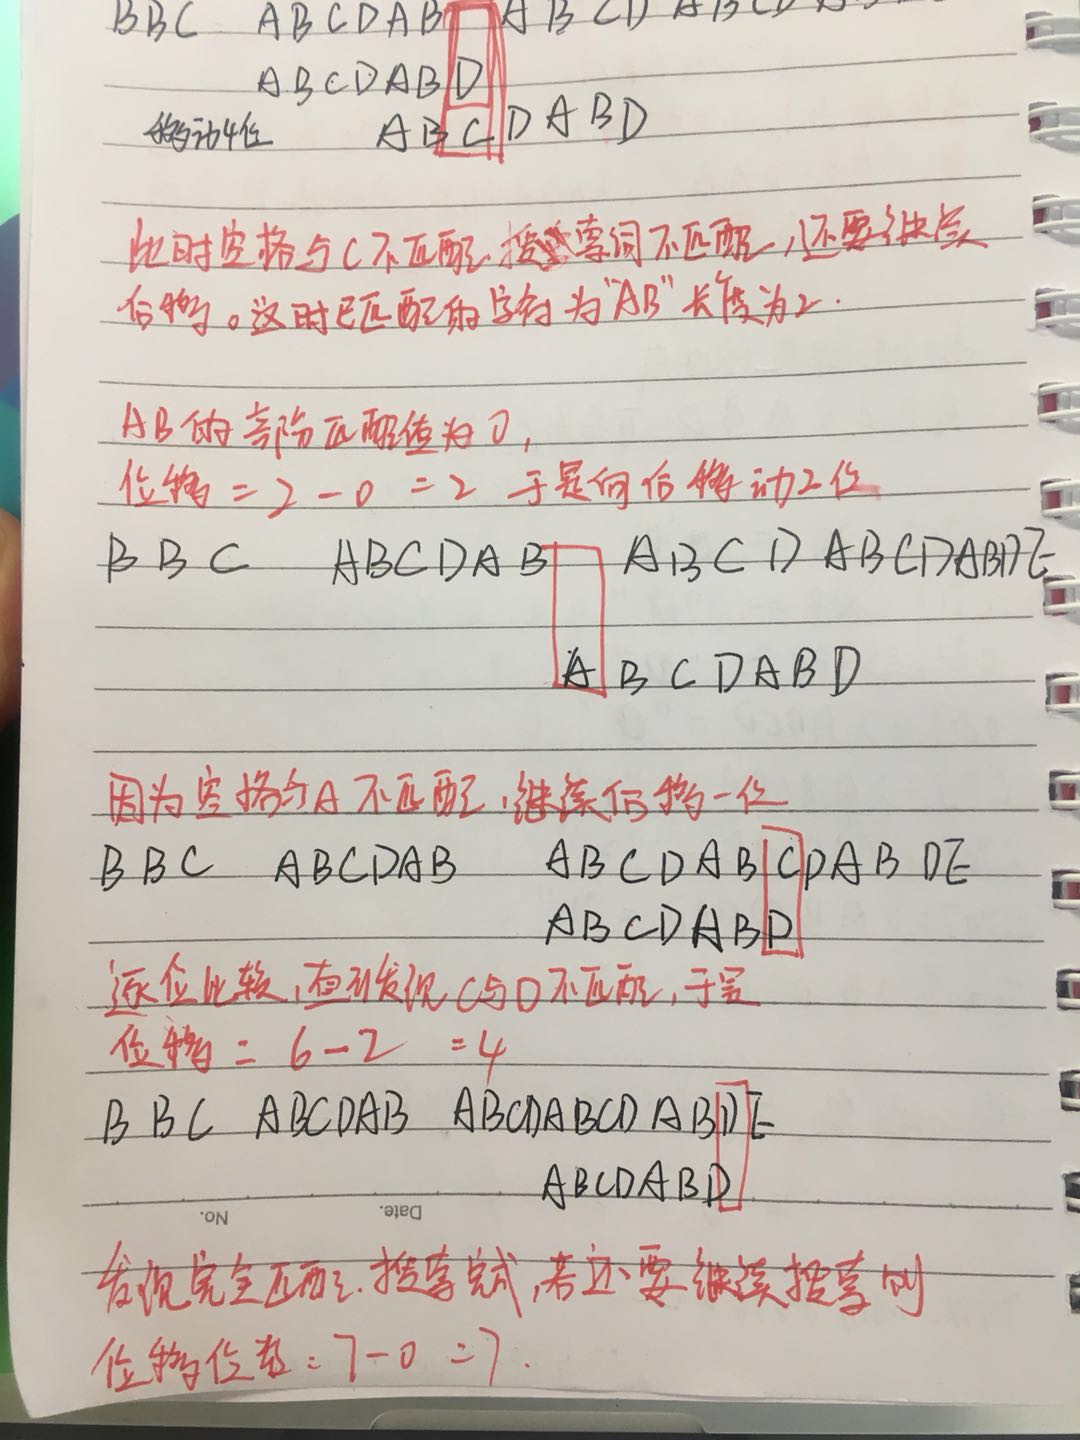 BBC ABCDAB ABCD ABCDAB
ABCDABD
移动4位 ABCDABD
此时空格与C不匹配,搜索词不匹配,还要继续
后移。这时已匹配的字符为"AB"长度为2.
AB的部分匹配值为0,
位移=2-0=2 于是向后移动2位
BBC ABCDAB ABCD ABCDABDE
ABCDABD
因为空格与A不匹配,继续后移一位
BBC ABCDAB ABCDABCDABDE
ABCDABD
逐位比较,直到发现C与D不匹配,于是
位移=6-2=4
BBC ABCDAB ABCDABCDABDE
ABCDABD
No. Date.
发现完全匹配,搜索完成,若还要继续搜索则
位移位数=7-0=7.